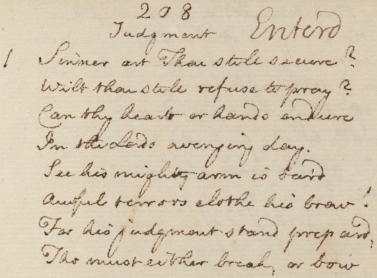 208
Judgment Enterd
1 Sinner art Thou still secure?
Wilt thou still refuse to pray?
Can thy heart or hands endure
In the Lords avenging day.
See his mighty arm is bar'd
Awful terrors clothe his brow!
For his judgment stand prepard,
Tho must either break, or bow